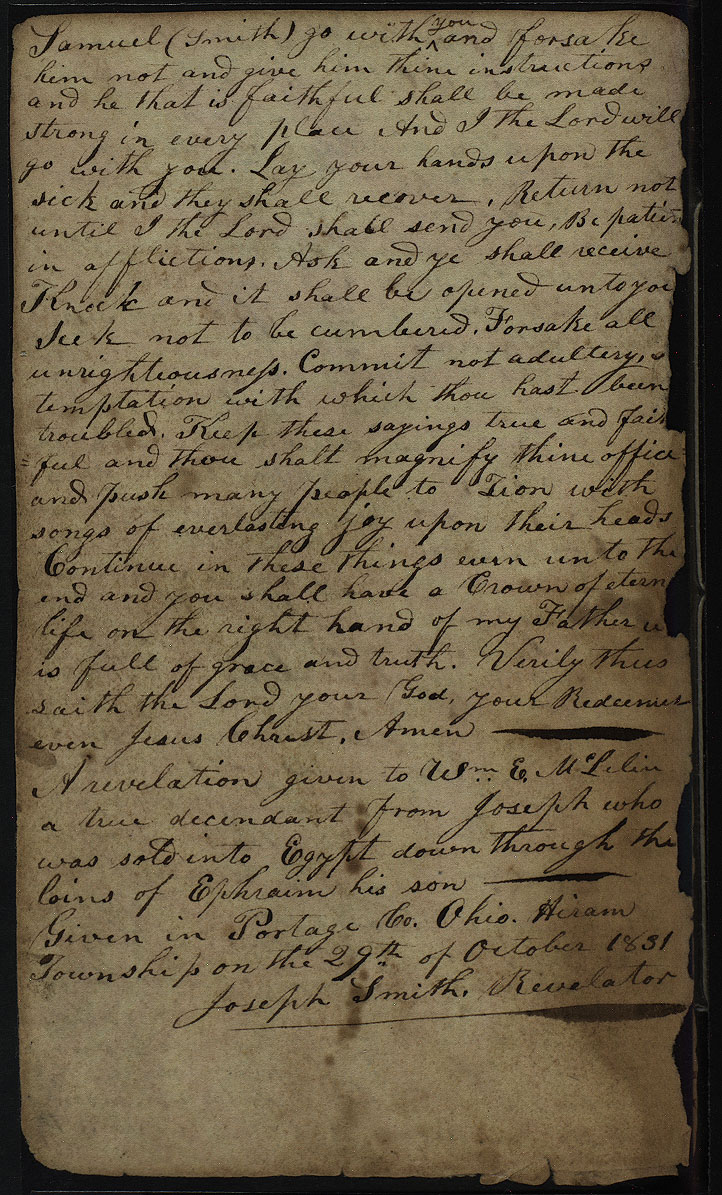 Samuel (Smith) go with you and forsake
him not and give him thine instructions
and he that is faithful shall be made
strong in every place And I the Lord will
go with you. Lay your hands upon the
sick and they shall recover, Return not
until I the Lord shall send you, Be patien
in afflictions. Ask and ye shall receive
Knock and it shall be opened unto you
Seek not to be cumbered. Forsake all
unrighteousness. Commit not adultery, a
temptation with which thou hast been
troubled. Keep these sayings true and faith
=ful and thou shalt magnify thine office
and push many people to Zion with
songs of everlasting joy upon their heads
Continue in these things even unto the
end and you shall have a Crown of etern
life on the right hand of my Father w
is full of grace and truth. Verily thus
saith the Lord your God, your Redeemer
even Jesus Christ. Amen
A revelation given to Wm. E. McLelin
a true decendant from Joseph who
was sold into Egypt down through the
loins of Ephraim his son
Given in Portage Co. Ohio. Hiram
Township on the 29th of October 1831
Joseph Smith. Revelator